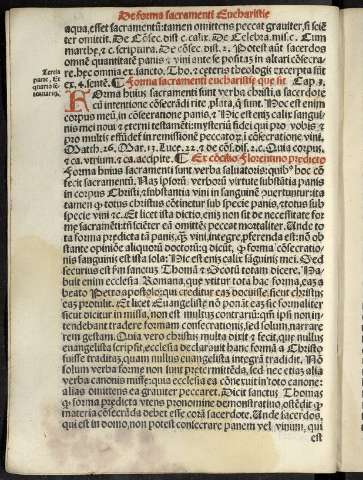 De forma sacramenti Eucharistie
aqua, esset sacramentū: tamen omittens peccat graviter, si sciēter
omittit. De Cōsec. dist. 2. c. calix. De Celebra. mis. c. Cum
marthę, & c. scriptura. De cōsec. dist. 2. Potest aūt sacerdos
omnē quantitatē panis & vini ante se positaz in altari cōsecrare.
hęc omnia ex. sancto. Tho. & ceteris theologis excerpta sūt
ex. 4. sentē. ¶ Forma sacramenti eucharistię que sit Cap. 3.
Tertia
pars. Ex
quarto se
tentiarū.
FOrma huius sacramenti sunt verba christi, a sacerdote
cū intentione cōsecrādi rite plata, q̄ sunt. Hoc est enim
corpus meū, in cōsecratione panis, & Hic est eniz calix sanguinis
mei noui & eterni testamēti: mysteriū fidei qui pro vobis &
pro multis effūdet in remissionē peccatoz, i cōsecratione vini.
Math. 26. Mar. 13. Luce. 22. & de cōs. dist. 2. c. Quia corpus,
& ca. vtrum. & ca. accipite. ¶ Ex cōcilio Florentino predicto
Forma huius sacramenti sunt verba saluatoris: quibꝰ hoc cōfecit
sacramentū. Naz ipsorū verborū virtute substātia panis
in corpus Christi, & substantia vini in sanguinē conuertuntur: ita
tamen ꝙ totus christus cōtinetur sub specie panis, & totus sub
specie vini &c. Et licet ista dictio, eniz non sit de necessitate forme
sacramēti: tn̄ sciēter eā omittēs peccat mortaliter. Unde tota
forma predicta tā panis, q̄ȝ vini, integre, pferenda est: nō obstante
opinōe aliquorū doctorū: q̄ dicūt, ꝙ forma cōsecrationis
sanguinis est ista sola: Hic est eniz calix sāguinis mei. Sed
securius est fm sanctus Thomā & Scotū totam dicere. Habuit
enim ecclesia Romana, que vtitur tota hac forma, eaz a
beato Petro apostolo: qui creditur eaz docuisse, sicut christus
eaz protulit. Et licet Euangelistę nō ponāt eaz sic formaliter
sicut dicitur in missa, non est multuz contrariū: qm̄ ipsi non intendebant
tradere formam consecrationis, sed solum, narrare
rem gestam. Quia vero christus multa dixit & fecit, que nullus
euangelista scripsit, ecclesia declarauit hanc formā a Christo
fuisse traditaz, quam nullus euangelista integrā tradidit. Nō
solum verba formę non sunt pretermittēda, sed nec etiaz alia
verba canonis missę: que ecclesia ea cōnexuit in toto canone:
alias omittens ea grauiter peccaret. Dicit sanctus Thomas
ꝙ forma predicta vtens pronomine demonstratiuo, ostēdit ꝙ
materia cōsecrāda debet esse corā sacerdote. Unde sacerdos,
qui est in domo, non potest consecrare panem vel vinum, qui
est